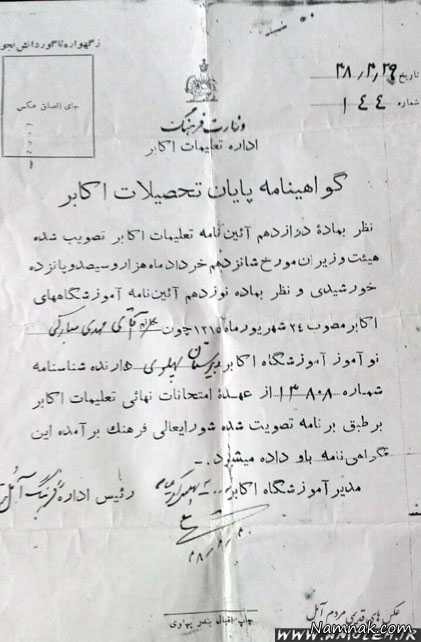 ز گهواره تا گور دانش بجو
تاریخ ۳۸/۳/۲۹
شماره ۱۴۴
جای الصاق عکس
وزارت فرهنگ
اداره تعلیمات اکابر
گواهینامه پایان تحصیلات اکابر
نظر بمادهٔ دوازدهم آئین‌نامه تعلیمات اکابر تصویب شده
هیئت وزیران مورخ شانزدهم خرداد ماه هزار و سیصد و پانزده
خورشیدی و نظر بماده نوزدهم آئین‌نامه آموزشگاههای
اکابر مصوب ۲۴ شهریور ماه ۱۳۱۵ چون آقای مهدی
نوآموز آموزشگاه اکابر دبیرستان پهلوی دارنده شناسنامه
شماره ۱۳۸۰۸ از عهدهٔ امتحانات نهائی تعلیمات اکابر
برطبق برنامه تصویت شده شورایعالی فرهنگ برآمده این
گواهی‌نامه باو داده میشود.-
مدیر آموزشگاه اکابر رئیس اداره فرهنگ آمل
چاپ اقبال بندر پهلوی
عکس های قدیمی مردم آمل
Namnak.com